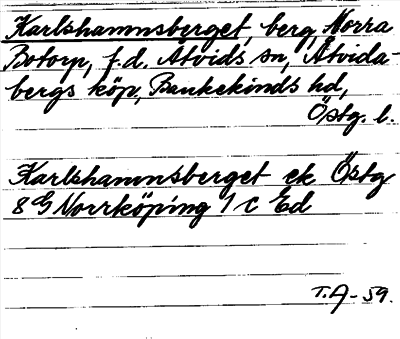 Karlshamnsberget, berg, Norra
Botorp, f.d. Åtvids sn, Åtvida-
bergs köp, Bankekinds hd,
Östg. l.
Karlshamnsberget ek Östg
8 G Norrköping 1 c Ed
T.A-59.